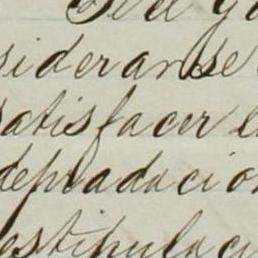 sideranse
satisfacer
depradacio
estipulaci